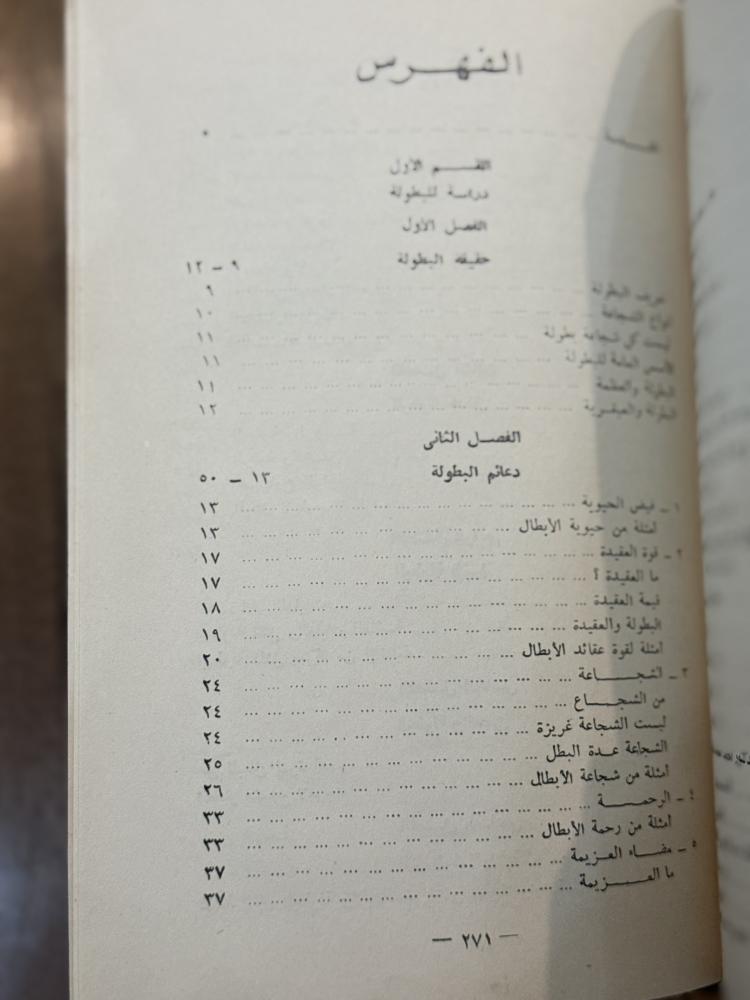 الفهرس
مقدمة ... ٥
القسم الأول
دراسة للبطولة
الفصل الأول
حقيقة البطولة ٩ - ١٢
تعريف البطولة ... ٩
أنواع الشجاعة ... ١٠
ليست كل شجاعة بطولة ... ١١
الأسس العامة للبطولة ... ١١
البطولة والعظمة ... ١١
البطولة والعبقرية ... ١٢
الفصل الثانى
دعائم البطولة ١٣ - ٥٠
١ - فيض الحيوية ... ١٣
أمثلة من حيوية الأبطال ... ١٣
٢ - قوة العقيدة ... ١٧
ما العقيدة ؟ ... ١٧
قيمة العقيدة ... ١٨
البطولة والعقيدة ... ١٩
أمثلة لقوة عقائد الأبطال ... ٢٠
٣ - الشجاعة ... ٢٤
من الشجاع ... ٢٤
ليست الشجاعة غريزة ... ٢٤
الشجاعة عدة البطل ... ٢٥
أمثلة من شجاعة الأبطال ... ٢٦
٤ - الرحمة ... ٣٣
أمثلة من رحمة الأبطال ... ٣٣
٥ - مضاء العزيمة ... ٣٧
ما العزيمة ... ٣٧
— ٢٧١ —